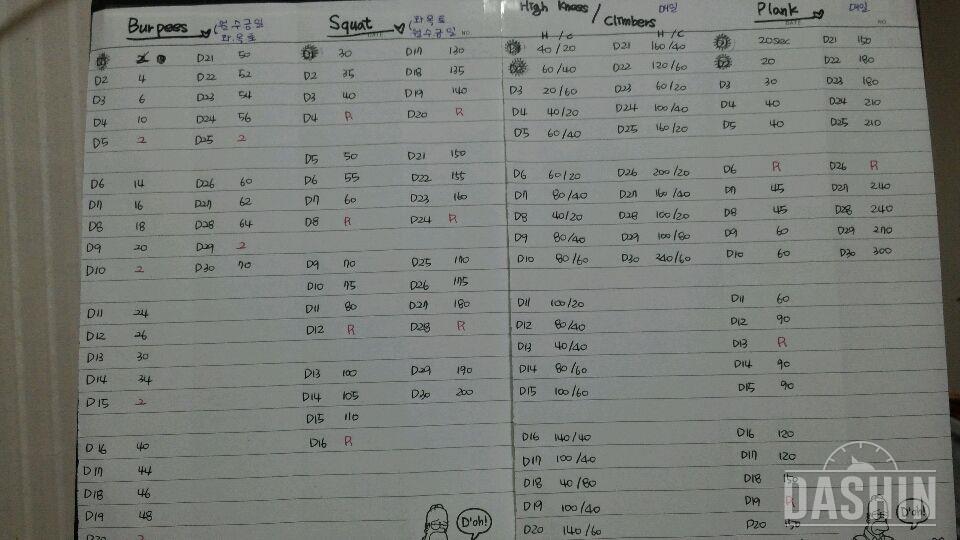 Burpees (월수금일 Squat (화목토 High Knees / Climbers 매일 Plank 매일
화.목토 월수금일
DATE NO. DATE NO.
H / C H / C
D21 50 D1 30 D17 130 D1 40/20 D21 160/40 D1 20sec D21 150
D2 4 D22 52 D2 35 D18 135 D2 60/40 D22 120/60 D2 20 D22 180
D3 6 D23 54 D3 40 D19 140 D3 20/60 D23 60/20 D3 30 D23 180
D4 10 D24 56 D4 R D20 R D4 40/20 D24 100/40 D4 40 D24 210
D5 2 D25 2 D5 60/40 D25 160/20 D5 40 D25 210
D5 50 D21 150
D6 14 D26 60 D6 55 D22 155 D6 60/20 D26 200/20 D6 R D26 R
D7 16 D27 62 D7 60 D23 160 D7 80/40 D27 160/40 D7 45 D27 240
D8 18 D28 64 D8 R D24 R D8 40/20 D28 100/20 D8 45 D28 240
D9 20 D29 2 D9 80/40 D29 100/80 D9 60 D29 270
D10 2 D30 70 D9 70 D25 170 D10 80/60 D30 240/60 D10 60 D30 300
D10 75 D26 175
D11 24 D11 80 D27 180 D11 100/20 D11 60
D12 26 D12 R D28 R D12 80/40 D12 90
D13 30 D13 40/40 D13 R
D14 34 D13 100 D29 190 D14 80/60 D14 90
D15 2 D14 105 D30 200 D15 100/60 D15 90
D15 110
D16 40 D16 R D16 140/40 D16 120
D17 44 D17 100/40 D17 120
D18 46 D18 40/80 D18 150
D19 48 D19 100/40 D19 R
D20 2 D20 140/60 D20 150
D'oh! D'oh!
DASHIN